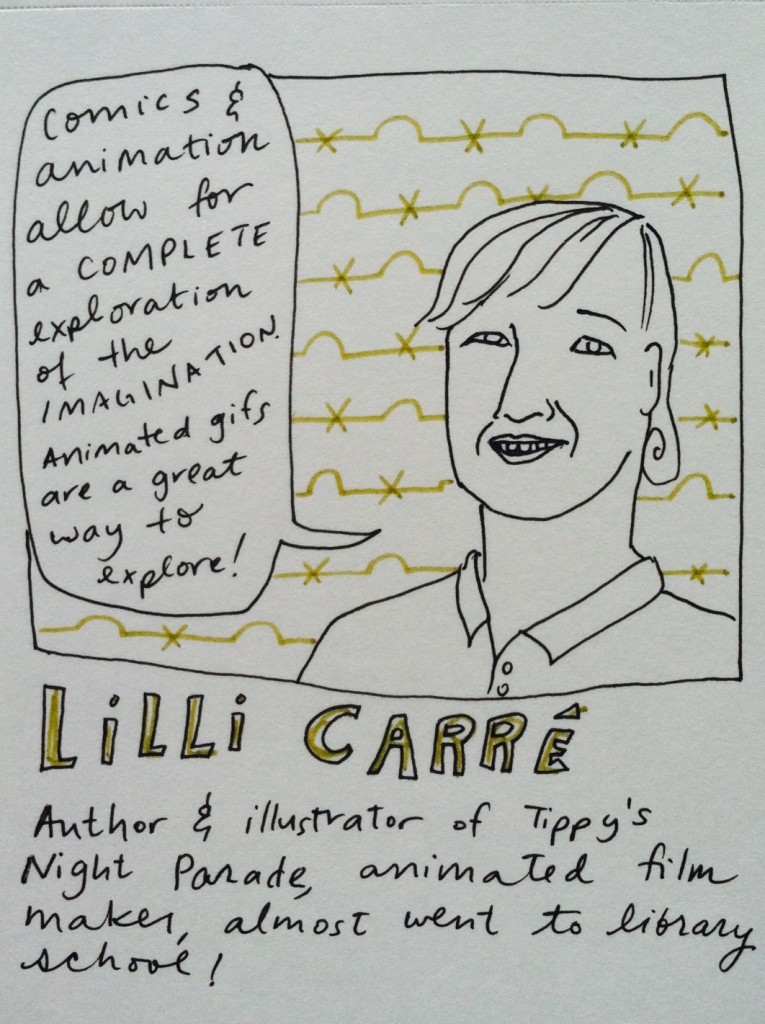 Comics &
animation
allow for
a COMPLETE
exploration
of the
IMAGINATION.
Animated gifs
are a great
way to
explore!
LiLLi CARRÊ
Author & illustrator of Tippy's
Night Parade, animated film
maker, almost went to library
school!